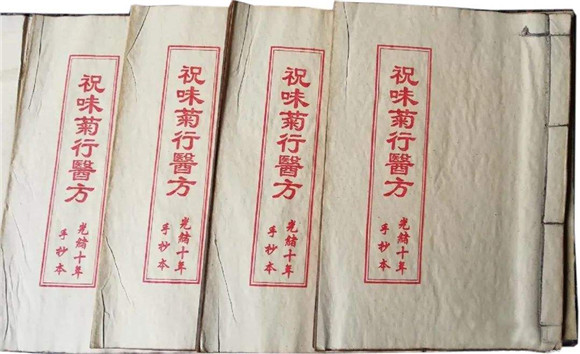 祝味菊行醫方
光緒十年
手抄本
祝味菊行醫方
光緒十年
手抄本
祝味菊行醫方
光緒十年
手抄本
祝味菊行醫方
光緒十年
手抄本